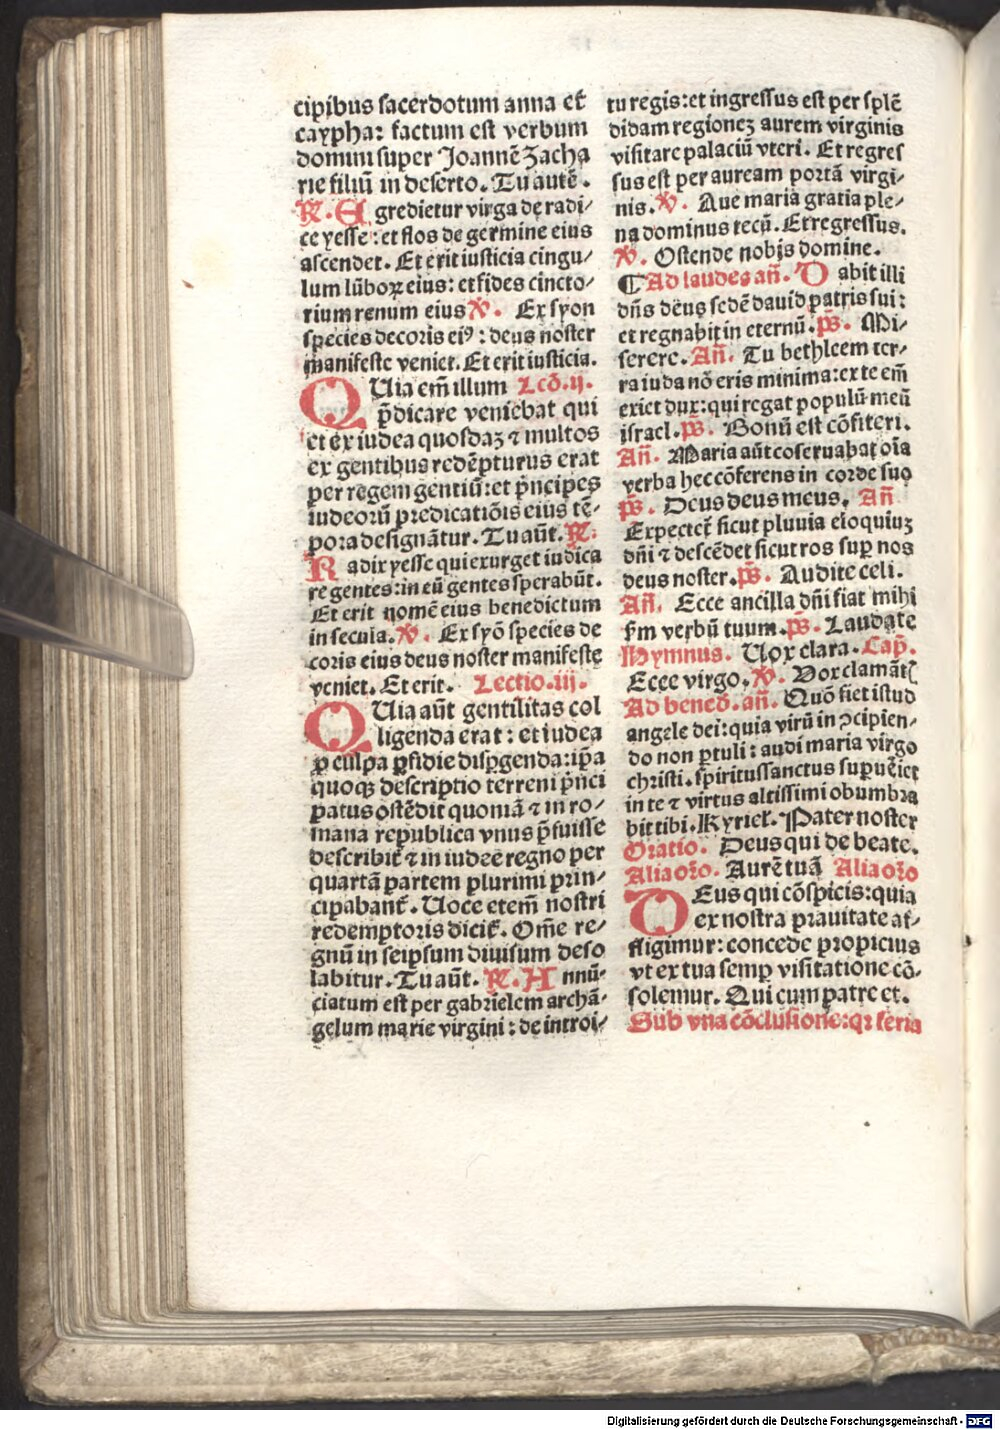 cipibus sacerdotum anna et̄
caypha: factum est verbum
domini super Joannē Zacha
rie filiū in deserto. Tu autē.
R̄. E gredietur virga de radi⸗
ce yesse: et flos de germine eius
ascendet. Et erit iusticia cingu⸗
lum lūboꝝ eius: et fides cincto⸗
rium renum eius ℣. Ex syon
species decoris eiꝰ: deus noster
manifeste veniet. Et erit iusticia.
QUia em̄ illum Lcō.ij.
p̄dicare veniebat qui
et ex iudea quosdaꝫ ⁊ multos
ex gentibus redēpturus erat
per regem gentiū: et p̄ncipes
iudeorū predicatiōis eius tē⸗
pora designātur. Tu aūt. R̄.
R adix yesse qui exurget iudica
re gentes: in eū gentes sperabūt.
Et erit nomē eius benedictum
in secula. ℣. Ex syō species de
coris eius deus noster manifeste
veniet. Et erit. Lectio.iij.
QUia aūt gentilitas col
ligenda erat: et iudea
ꝓ culpa ꝑfidie disꝑgenda: ip̄a
quoqꝫ descriptio terreni p̄nci
patus ostēdit quoniā ⁊ in ro⸗
mana republica vnus p̄fuisse
describit̄ ⁊ in iudee regno per
quartā partem plurimi prin⸗
cipabant̄. Uoce etem̄ nostri
redemptoris dicit̄. Om̄e re⸗
gnū in seipsum diuisum deso
labitur. Tu aūt. R̄. A nnū⸗
ciatum est per gabrielem archā⸗
gelum marie virgini: de introi⸗
tu regis: et ingressus est per splē
didam regioneꝫ aurem virginis
visitare palaciū vteri. Et regres
sus est per auream portā virgi⸗
nis. ℣. Aue maria gratia ple⸗
na dominus tecū. Et regressus.
℣. Ostende nobis domine.
¶ Ad laudes an̄. D abit illi
dn̄s deus sedē dauid patris sui:
et regnabit in eternū. p̄s. Mi⸗
serere. An̄. Tu bethleem ter⸗
ra iuda nō eris minima: ex te em̄
exiet dux: qui regat populū meū
israel. p̄s. Bonū est cōfiteri.
An̄. Maria aūt coseruabat oīa
verba hec cōferens in corde suo
p̄s. Deus deus meus. An̄
Expectet̄ sicut pluuia eloquiuꝫ
dn̄i ⁊ descēdet sicut ros suꝑ nos
deus noster. p̄s. Audite celi.
An̄. Ecce ancilla dn̄i fiat mihi
s̄m verbū tuum. p̄s. Laudate
Hymnus. Uox clara. Cap̄.
Ecce virgo. ℣. Vox clamāt̄
Ad bened̄. an̄. Quō fiet istud
angele dei: quia virū in ↄcipien⸗
do non ꝑtuli: audi maria virgo
christi. spiritussanctus suꝑuēiet
in te ⁊ virtus altissimi obumbra
bit tibi. Kyriel̄. Pater noster
Oratio. Deus qui de beate.
Alia or̄o. Aurē tuā Alia or̄o
DEus qui cōspicis: quia
ex nostra prauitate af⸗
fligimur: concede propicius
vt ex tua semꝑ visitatione cō⸗
solemur. Qui cum patre et.
Sub vna cōclusione: qꝛ feria
Digitalisierung gefördert durch die Deutsche Forschungsgemeinschaft - DFG